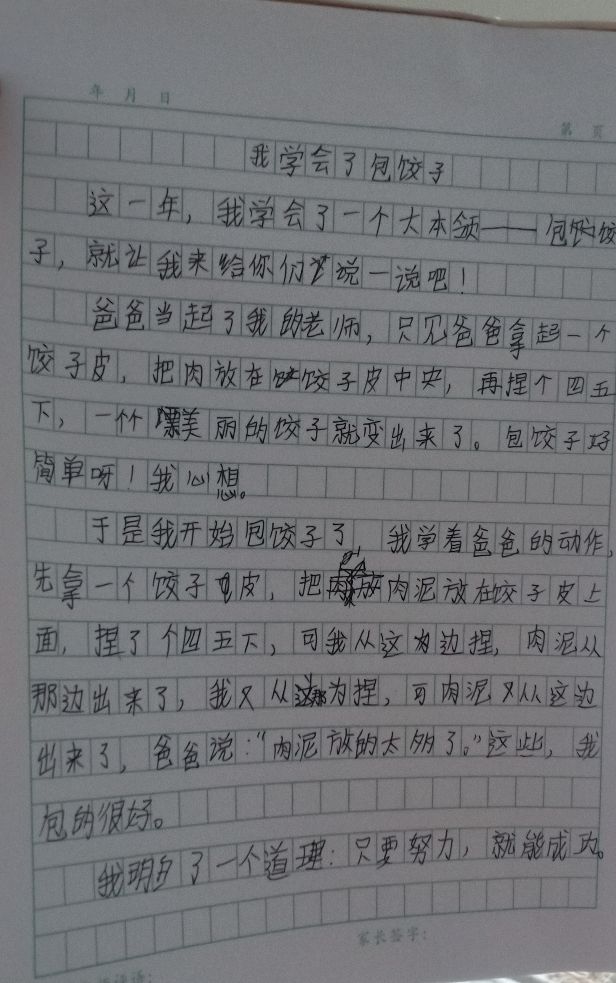 年 月 日
第 页
我学会了包饺子
这一年，我学会了一个大本领——包饺
子，就让我来给你们说一说吧！
爸爸当起了我的老师，只见爸爸拿起一个
饺子皮，把肉放在饺子皮中央，再捏个四五
下，一个漂美丽的饺子就变出来了。包饺子好
简单呀！我心想。
于是我开始包饺子了，我学着爸爸的动作，
先拿一个饺子皮，把肉泥放在饺子皮上
面，捏了个四五下，可我从这边捏，肉泥从
那边出来了，我又从那为捏，可肉泥又从这边
出来了，爸爸说：“肉泥放的太多了。”这些，我
包的很好。
我明白了一个道理：只要努力，就能成功。
家长签字：
评语：